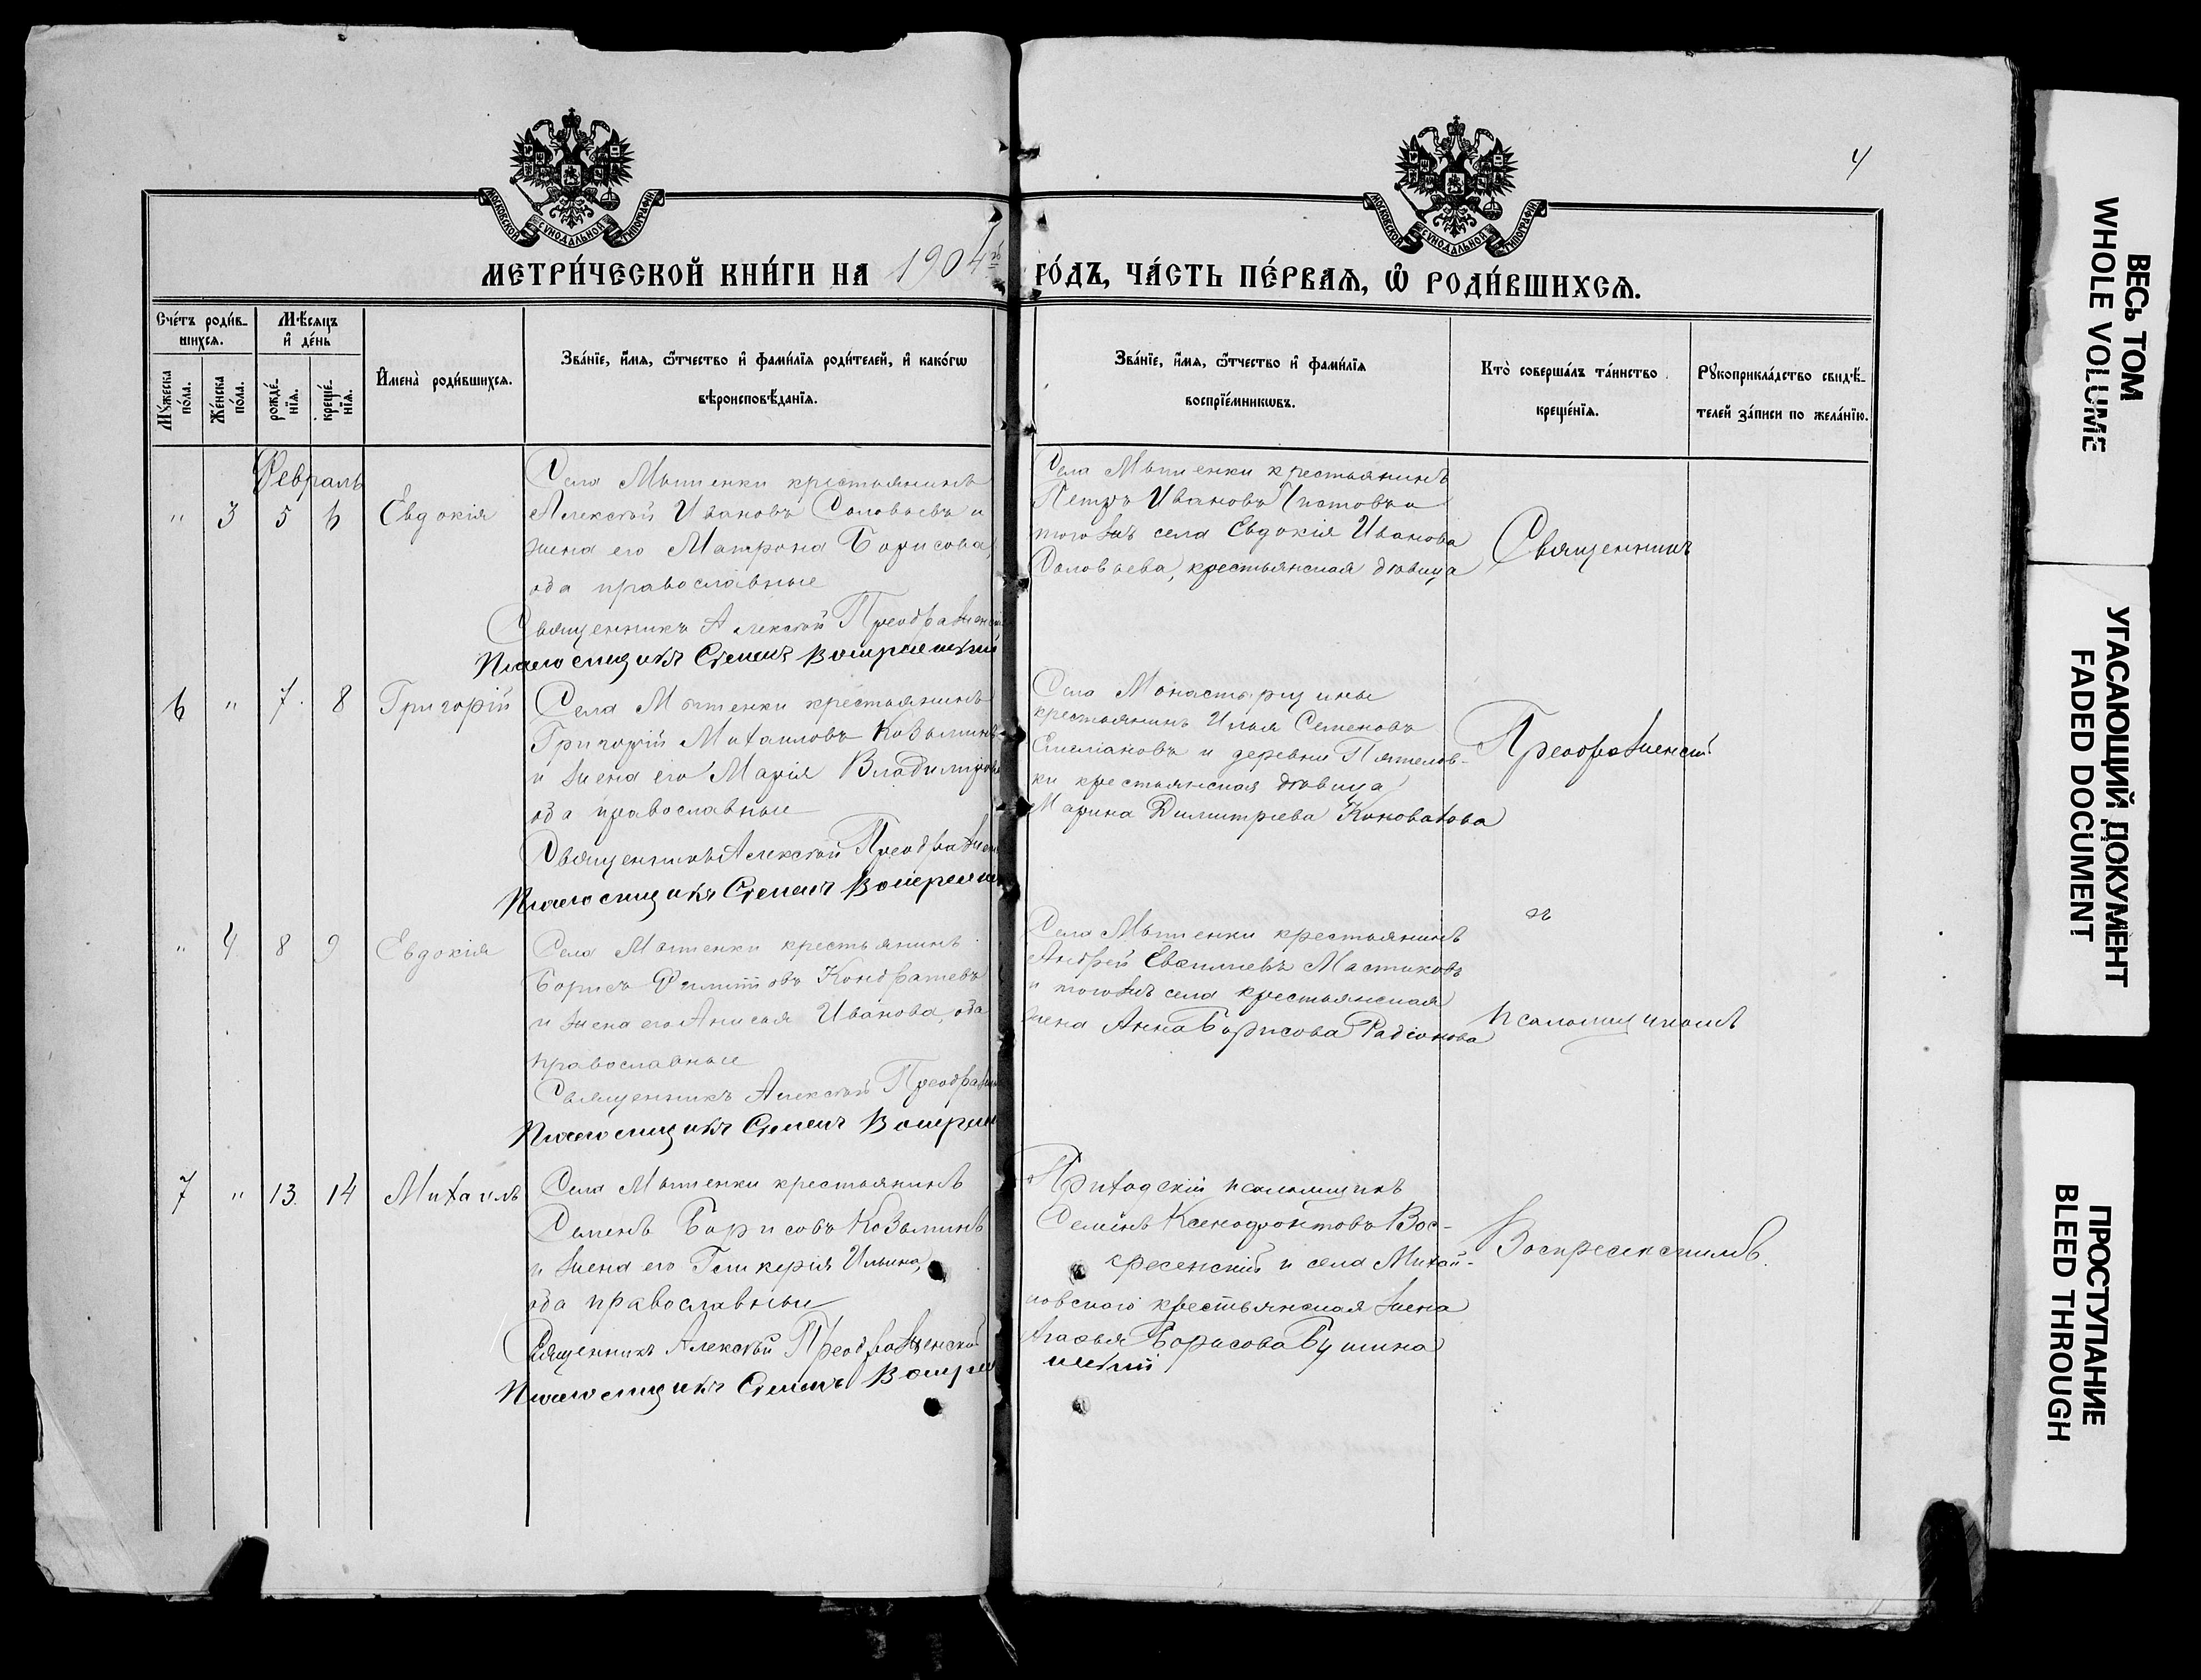 4
МОСКОВСКОЙ СѴНОДАЛЬНОЙ ТИПОГРАФІИ
МОСКОВСКОЙ СѴНОДАЛЬНОЙ ТИПОГРАФІИ
МЕТРИ́ЧЕСКОЙ КНИ́ГИ НА 1904й ГО́ДЪ, ЧА́СТЬ ПЕ́РВАѦ, Ѽ РОДИ́ВШИХСѦ.
Сче́тъ роди́в-
шихсѧ.
Мѣ́сѧцъ
и҆ де́нь
Мꙋ́жеска
по́ла.
Же́нска
по́ла.
рожде́-
нїѧ.
креще́-
нїѧ.
И҆мена̀ роди́вшихсѧ.
Зва́нїе, и҆́мѧ, ѻ҆́тчество и҆ фами́лїѧ роди́телей, и҆ како́гѡ
вѣроисповѣ́данїѧ.
Зва́нїе, и҆́мѧ, ѻ҆́тчество и҆ фами́лїѧ
воспрїе́мникѡвъ.
Кто̀ соверша́лъ та́инство
креще́нїѧ.
Рꙋкоприкла́дство свидѣ́-
телей за́писи по жела́нїю.
Февраль
" 3 5 6 Евдокія
Села Мытенки крестьянинъ
Алексѣй Ивановъ Соловьевъ и
жена его Матрона Борисова,
оба православные
Священникъ Алексѣй Преображенскій
Псаломщикъ Семенъ Воскресенскій
Села Мытенки крестьянинъ
Петръ Ивановъ и
того же села Евдокія Иванова
Соловьева, крестьянская дѣвица
Священникъ
6 " 7 8 Григорій
Села Мытенки крестьянинъ
Григорій Михаиловъ Козьминъ
и жена его Марія Владимірова
оба православные
Священникъ Алексѣй Преображен
Псаломщикъ Семенъ Воскресен
Села Монастырщины
крестьянинъ Илья Семеновъ
Емеліановъ и деревни Пятелов-
ки крестьянская дѣвица
Марина Димитріева Коновалова
Преображенскій
" 4 8 9 Евдокія
Села Мытенки крестьянинъ
Борисъ Филипповъ Кондратевъ
и жена его Анисья Иванова, оба
православные
Священникъ Алексѣй Преображен
Псаломщикъ Семенъ Воскресен
Села Мытенки крестьянинъ
Андрей Евсиліевъ Мастиковъ
и того же села крестьянская
жена Анна Борисова Радіонова
съ
псаломщикомъ
7 " 13. 14 Михаилъ
Села Мытенки крестьянинъ
Семенъ Борисовъ Козьминъ
и жена его Гликерія Ильина,
оба православные
Священникъ Алексѣй Преображенскій
Псаломщикъ Семенъ Воскресен
Приходскій псаломщикъ
Семенъ Ксенофонтовъ Вос-
кресенскій и села Михай-
ловского крестьянская жена
Агафья Борисова
скій
Воскресенскимъ.
ВЕСЬ ТОМ
WHOLE VOLUME
УГАСАЮЩИЙ ДОКУМЕНТ
FADED DOCUMENT
ПРОСТУПАНИЕ
BLEED THROUGH